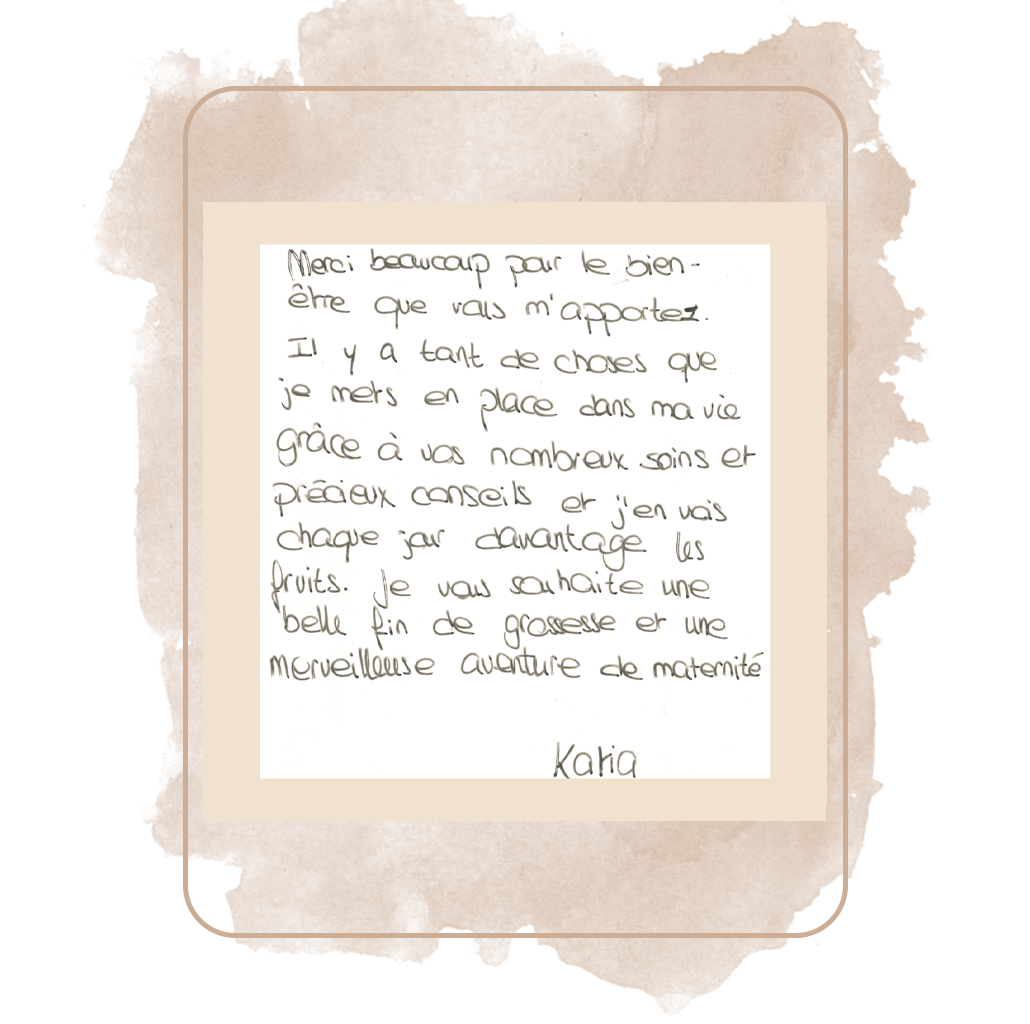 Merci beaucoup pour le bien-
être que vous m'apportez.
Il y a tant de choses que
je mets en place dans ma vie
grâce à vos nombreux soins et
précieux conseils et j'en vois
chaque jour davantage les
fruits. Je vous souhaite une
belle fin de grossesse et une
merveilleuse aventure de maternité
Katia